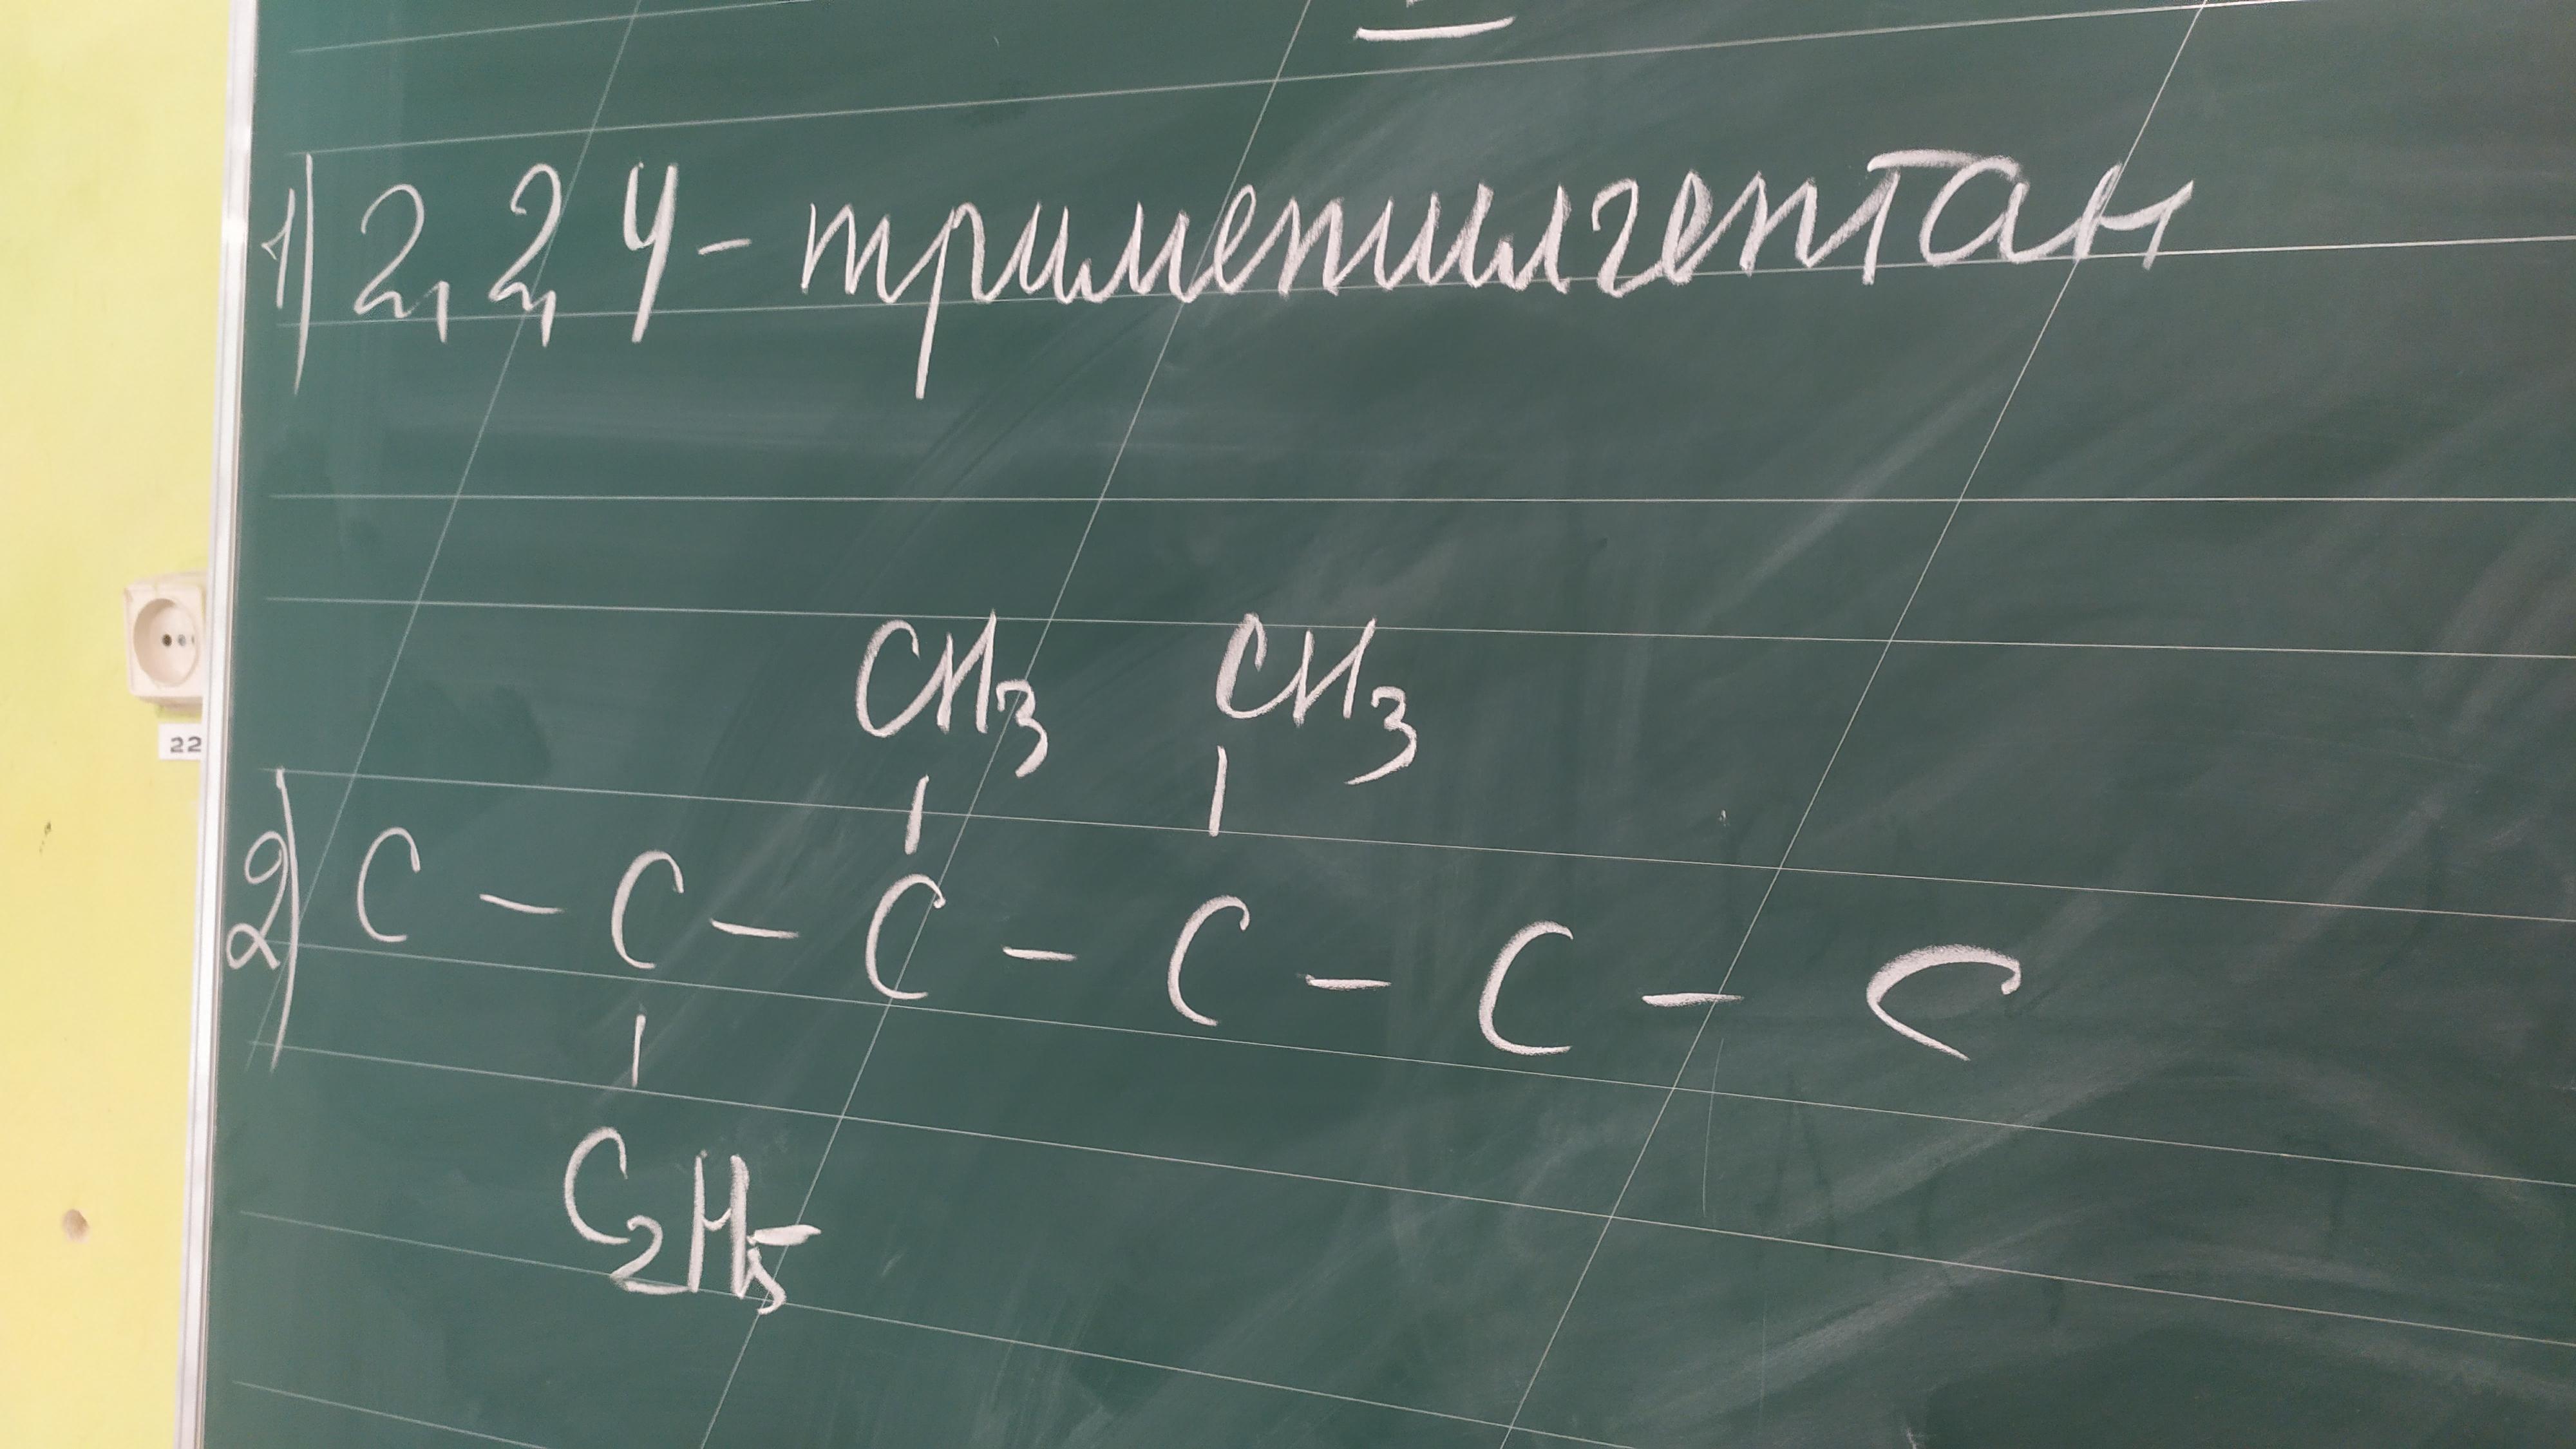 1) 2,2,4-триметилгептан
CH3 CH3
2) C - C - C - C - C - C
C2H5
22